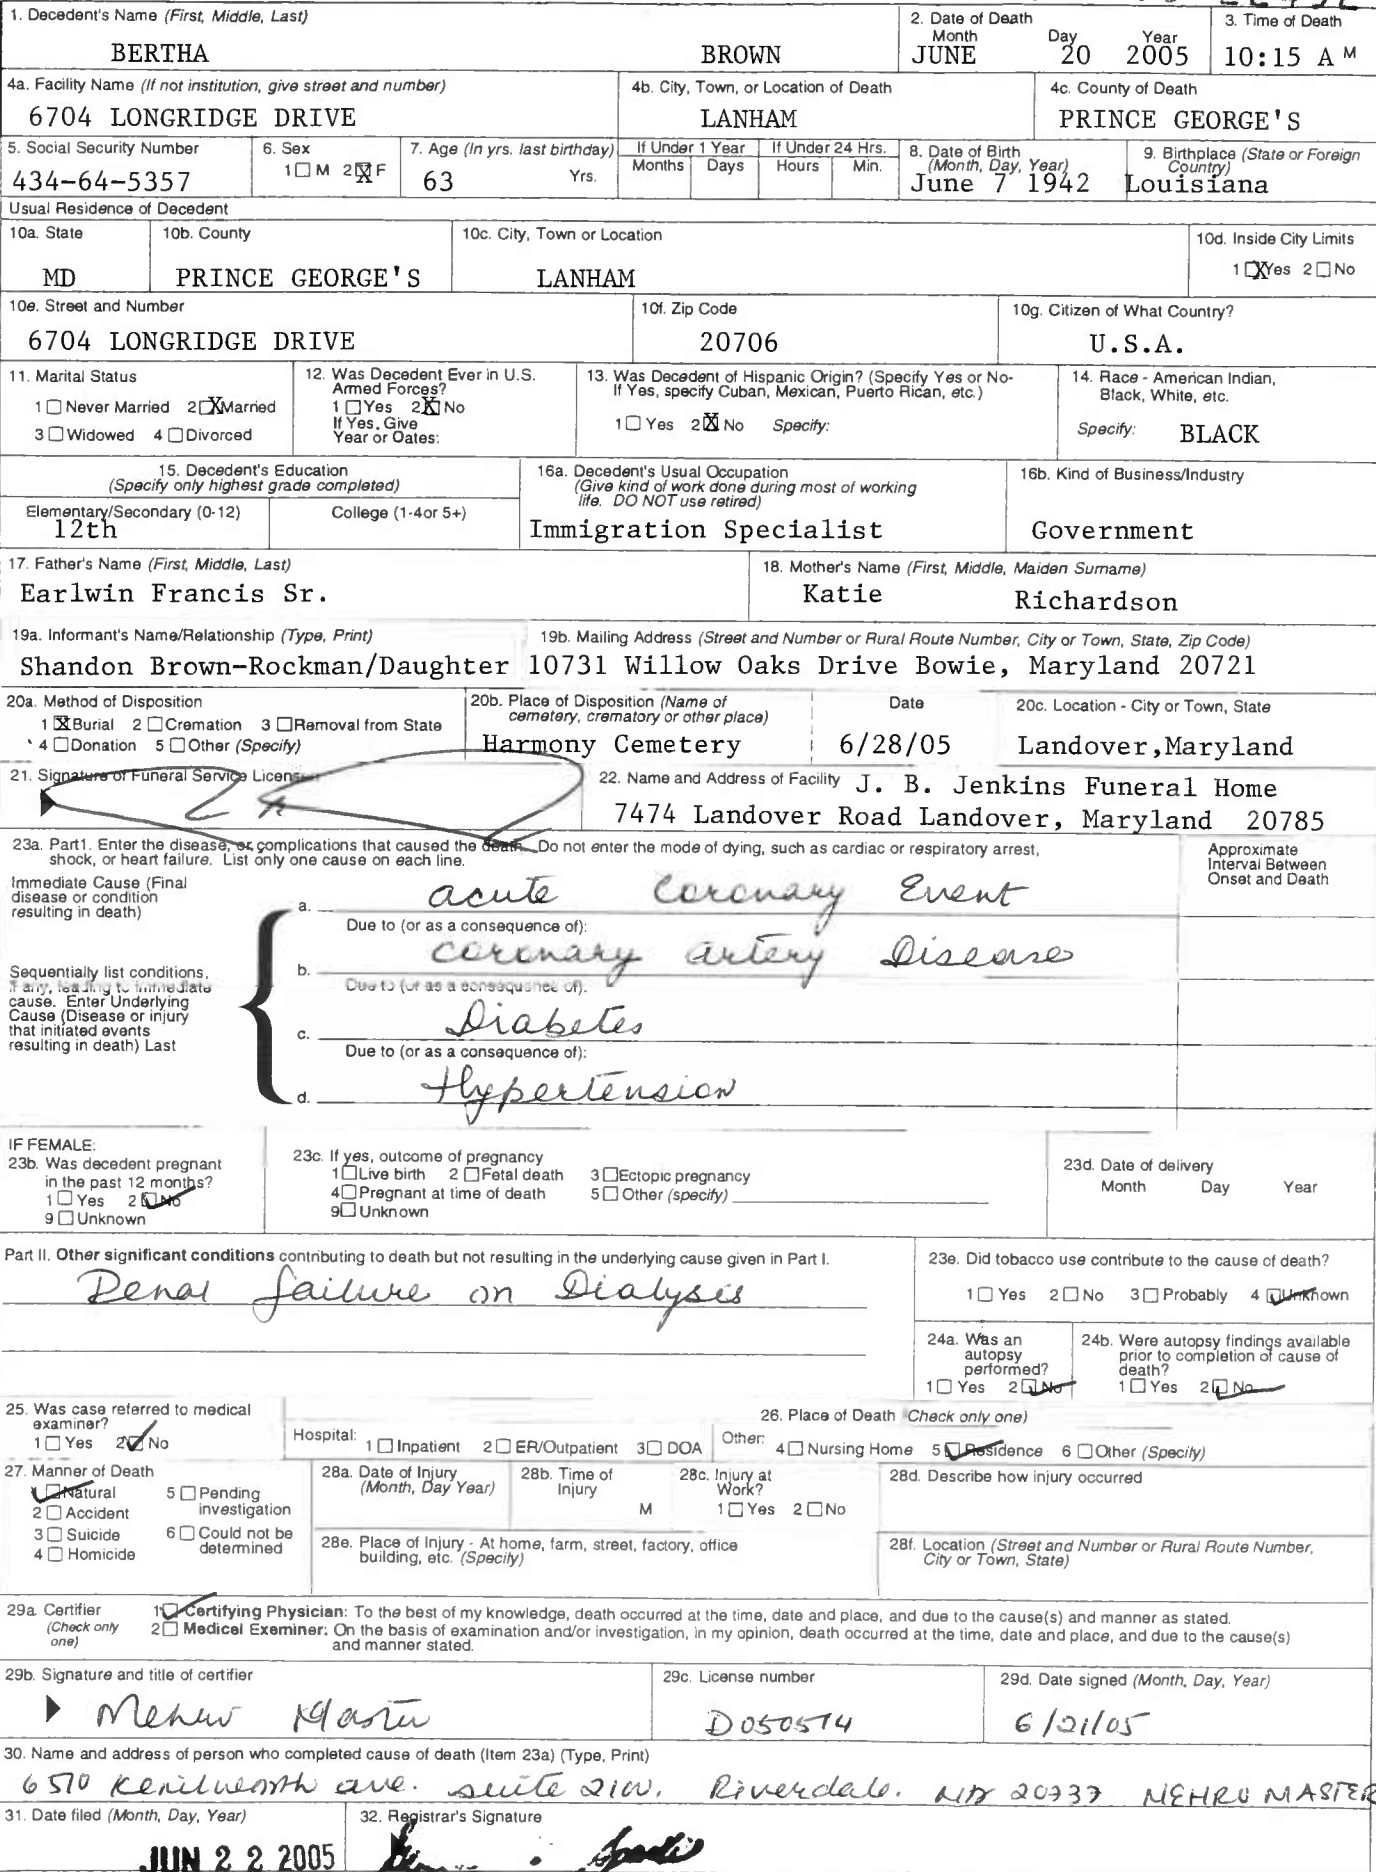 1. Decedent's Name (First, Middle, Last)
BERTHA BROWN
2. Date of Death
Month Day Year
JUNE 20 2005
3. Time of Death
10:15 A M
4a. Facility Name (If not institution, give street and number)
6704 LONGRIDGE DRIVE
4b. City, Town, or Location of Death
LANHAM
4c. County of Death
PRINCE GEORGE'S
5. Social Security Number
434-64-5357
6. Sex
1☐ M 2☒ F
7. Age (In yrs. last birthday)
63 Yrs.
If Under 1 Year
Months Days
If Under 24 Hrs.
Hours Min.
8. Date of Birth
(Month, Day, Year)
June 7 1942
9. Birthplace (State or Foreign
Country)
Louisiana
Usual Residence of Decedent
10a. State
MD
10b. County
PRINCE GEORGE'S
10c. City, Town or Location
LANHAM
10d. Inside City Limits
1☒Yes 2☐No
10e. Street and Number
6704 LONGRIDGE DRIVE
10f. Zip Code
20706
10g. Citizen of What Country?
U.S.A.
11. Marital Status
1☐Never Married 2☒Married
3☐Widowed 4☐Divorced
12. Was Decedent Ever in U.S.
Armed Forces?
1☐Yes 2☒No
If Yes, Give
Year or Dates:
13. Was Decedent of Hispanic Origin? (Specify Yes or No-
If Yes, specify Cuban, Mexican, Puerto Rican, etc.)
1☐ Yes 2☒ No Specify:
14. Race - American Indian,
Black, White, etc.
Specify: BLACK
15. Decedent's Education
(Specify only highest grade completed)
Elementary/Secondary (0-12) College (1-4or 5+)
12th
16a. Decedent's Usual Occupation
(Give kind of work done during most of working
life. DO NOT use retired)
Immigration Specialist
16b. Kind of Business/Industry
Government
17. Father's Name (First, Middle, Last)
Earlwin Francis Sr.
18. Mother's Name (First, Middle, Maiden Surname)
Katie Richardson
19a. Informant's Name/Relationship (Type, Print)
Shandon Brown-Rockman/Daughter
19b. Mailing Address (Street and Number or Rural Route Number, City or Town, State, Zip Code)
10731 Willow Oaks Drive Bowie, Maryland 20721
20a. Method of Disposition
1☒Burial 2☐Cremation 3☐Removal from State
4☐Donation 5☐Other (Specify)
20b. Place of Disposition (Name of
cemetery, crematory or other place)
Harmony Cemetery
Date
6/28/05
20c. Location - City or Town, State
Landover,Maryland
21. Signature of Funeral Service Licensee
22. Name and Address of Facility J. B. Jenkins Funeral Home
7474 Landover Road Landover, Maryland 20785
23a. Part1. Enter the disease, or complications that caused the death. Do not enter the mode of dying, such as cardiac or respiratory arrest,
shock, or heart failure. List only one cause on each line.
Approximate
Interval Between
Onset and Death
Immediate Cause (Final
disease or condition
resulting in death)
a. acute coronary Event
Due to (or as a consequence of):
b. coronary artery Disease
Due to (or as a consequence of):
Sequentially list conditions,
if any, leading to immediate
cause. Enter Underlying
Cause (Disease or injury
that initiated events
resulting in death) Last
c. Diabetes
Due to (or as a consequence of):
d. Hypertension
IF FEMALE:
23b. Was decedent pregnant
in the past 12 months?
1☐Yes 2☑No
9☐Unknown
23c. If yes, outcome of pregnancy
1☐Live birth 2☐Fetal death 3☐Ectopic pregnancy
4☐Pregnant at time of death 5☐Other (specify)
9☐Unknown
23d. Date of delivery
Month Day Year
Part II. Other significant conditions contributing to death but not resulting in the underlying cause given in Part I.
Renal failure on Dialysis
23e. Did tobacco use contribute to the cause of death?
1☐ Yes 2☐No 3☐Probably 4☑Unknown
24a. Was an
autopsy
performed?
1☐Yes 2☑No
24b. Were autopsy findings available
prior to completion of cause of
death?
1☐Yes 2☑No
25. Was case referred to medical
examiner?
1☐Yes 2☑No
26. Place of Death (Check only one)
Hospital: 1☐Inpatient 2☐ER/Outpatient 3☐DOA
Other: 4☐Nursing Home 5☑Residence 6☐Other (Specify)
27. Manner of Death
1☑Natural 5☐Pending
investigation
2☐Accident
3☐Suicide 6☐Could not be
determined
4☐Homicide
28a. Date of Injury
(Month, Day Year)
28b. Time of
Injury
M
28c. Injury at
Work?
1☐Yes 2☐No
28d. Describe how injury occurred
28e. Place of Injury - At home, farm, street, factory, office
building, etc. (Specify)
28f. Location (Street and Number or Rural Route Number,
City or Town, State)
29a. Certifier
(Check only
one)
1☑Certifying Physician: To the best of my knowledge, death occurred at the time, date and place, and due to the cause(s) and manner as stated.
2☐Medical Examiner: On the basis of examination and/or investigation, in my opinion, death occurred at the time, date and place, and due to the cause(s)
and manner stated.
29b. Signature and title of certifier
Mehru Master
29c. License number
D050514
29d. Date signed (Month, Day, Year)
6/21/05
30. Name and address of person who completed cause of death (Item 23a) (Type, Print)
6510 Kenilworth ave. suite 2100. Riverdale. MD 20737 MEHRU MASTER
31. Date filed (Month, Day, Year)
JUN 22 2005
32. Registrar's Signature